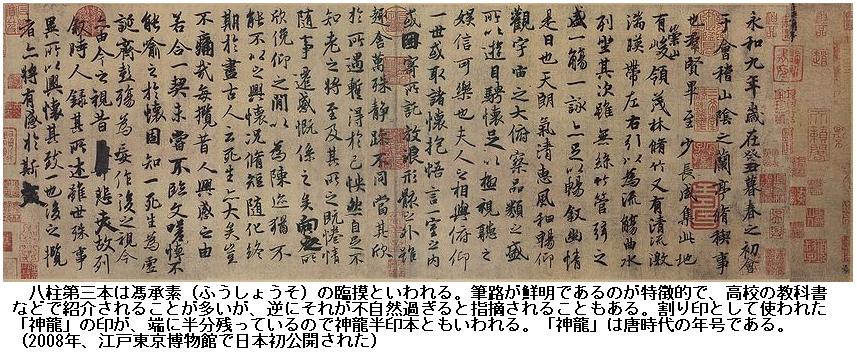 永和九年歲在癸丑暮春之初會
于會稽山陰之蘭亭脩稧事
也羣賢畢至少長咸集此地
有崇山峻領茂林脩竹又有清流激
湍暎帶左右引以為流觴曲水
列坐其次雖無絲竹管弦之
盛一觴一詠亦足以暢叙幽情
是日也天朗氣清惠風和暢仰
觀宇宙之大俯察品類之盛
所以遊目騁懷足以極視聽之
娛信可樂也夫人之相與俯仰
一世或取諸懷抱悟言一室之內
或因寄所託放浪形骸之外雖
趣舍萬殊靜躁不同當其欣
於所遇蹔得於己怏然自足不
知老之將至及其所之既惓情
隨事遷感慨係之矣向之所
欣俛仰之閒以為陳迹猶不
能不以之興懷況脩短隨化終
期於盡古人云死生亦大矣豈
不痛哉每攬昔人興感之由
若合一契未嘗不臨文嗟悼不
能喻之於懷固知一死生為虛
誕齊彭殤為妄作後之視今
亦由今之視昔悲夫故列
叙時人錄其所述雖世殊事
異所以興懷其致一也後之攬
者亦將有感於斯文
八柱第三本は馮承素（ふうしょうそ）の臨摸といわれる。筆路が鮮明であるのが特徴的で、高校の教科書
などで紹介されることが多いが、逆にそれが不自然過ぎると指摘されることもある。割り印として使われた
「神龍」の印が、端に半分残っているので神龍半印本ともいわれる。「神龍」は唐時代の年号である。
（2008年、江戸東京博物館で日本初公開された）